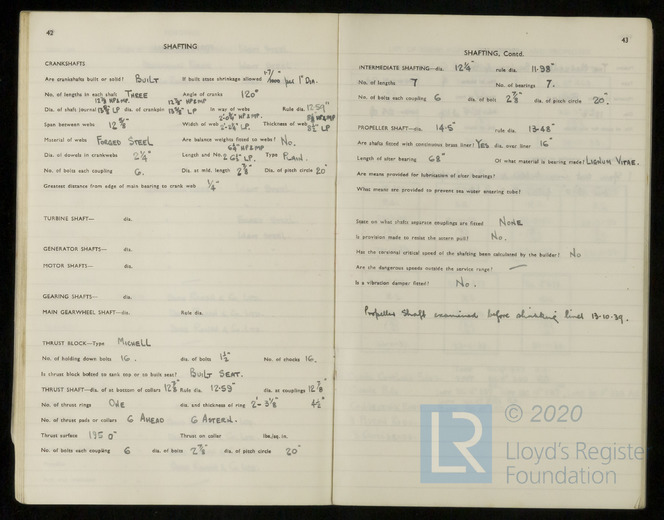 42
SHAFTING
CRANKSHAFTS
Are crankshafts built or solid? BUILT If built state shrinkage allowed per 1" DIA.
No. of lengths in each shaft THREE Angle of cranks 120°
Dia. of shaft journal dia. of crankpin In way of webs Rule dia. 12·59"
Span between webs 12 5/8" Width of web Thickness of web
Material of webs FORGED STEEL Are balance weights fitted to webs? No.
Dia. of dowels in crankwebs 2 1/4" Length and No. Type PLAIN.
No. of bolts each coupling 6. Dia. at mid. length 2 7/8" Dia. of pitch circle 20"
Greatest distance from edge of main bearing to crank web 1/4"
TURBINE SHAFT— dia.
GENERATOR SHAFTS— dia.
MOTOR SHAFTS— dia.
GEARING SHAFTS— dia.
MAIN GEARWHEEL SHAFT—dia. Rule dia.
THRUST BLOCK—Type MICHELL
No. of holding down bolts 16. dia. of bolts 1 1/2" No. of chocks 16.
Is thrust block bolted to tank top or to built seat? BUILT SEAT.
THRUST SHAFT—dia. of at bottom of collars 12 7/8" Rule dia. 12·59" dia. at couplings 12 7/8"
No. of thrust rings ONE dia. and thickness of ring 4 1/2"
No. of thrust pads or collars 6 AHEAD 6 ASTERN.
Thrust surface Thrust on collar lbs./sq. in.
No. of bolts each coupling 6 dia. of bolts 2 7/8" dia. of pitch circle 20"
43
SHAFTING, Contd.
INTERMEDIATE SHAFTING—dia. 12 1/4" rule dia. 11·98"
No. of lengths 7 No. of bearings 7.
No. of bolts each coupling 6 dia. of bolt 2 7/8" dia. of pitch circle 20".
PROPELLER SHAFT—dia. 14·5" rule dia. 13·48"
Are shafts fitted with continuous brass liner? YES dia. over liner 16"
Length of after bearing 68" Of what material is bearing made? LIGNUM VITAE.
Are means provided for lubrication of after bearings?
What means are provided to prevent sea water entering tube?
State on what shafts separate couplings are fitted NONE
Is provision made to resist the astern pull? No.
Has the torsional critical speed of the shafting been calculated by the builder? No
Are the dangerous speeds outside the service range? —
Is a vibration damper fitted? No.
Propeller shaft examined before shrinking liner 13-10-39.
LR
© 2020
Lloyd's Register
Foundation